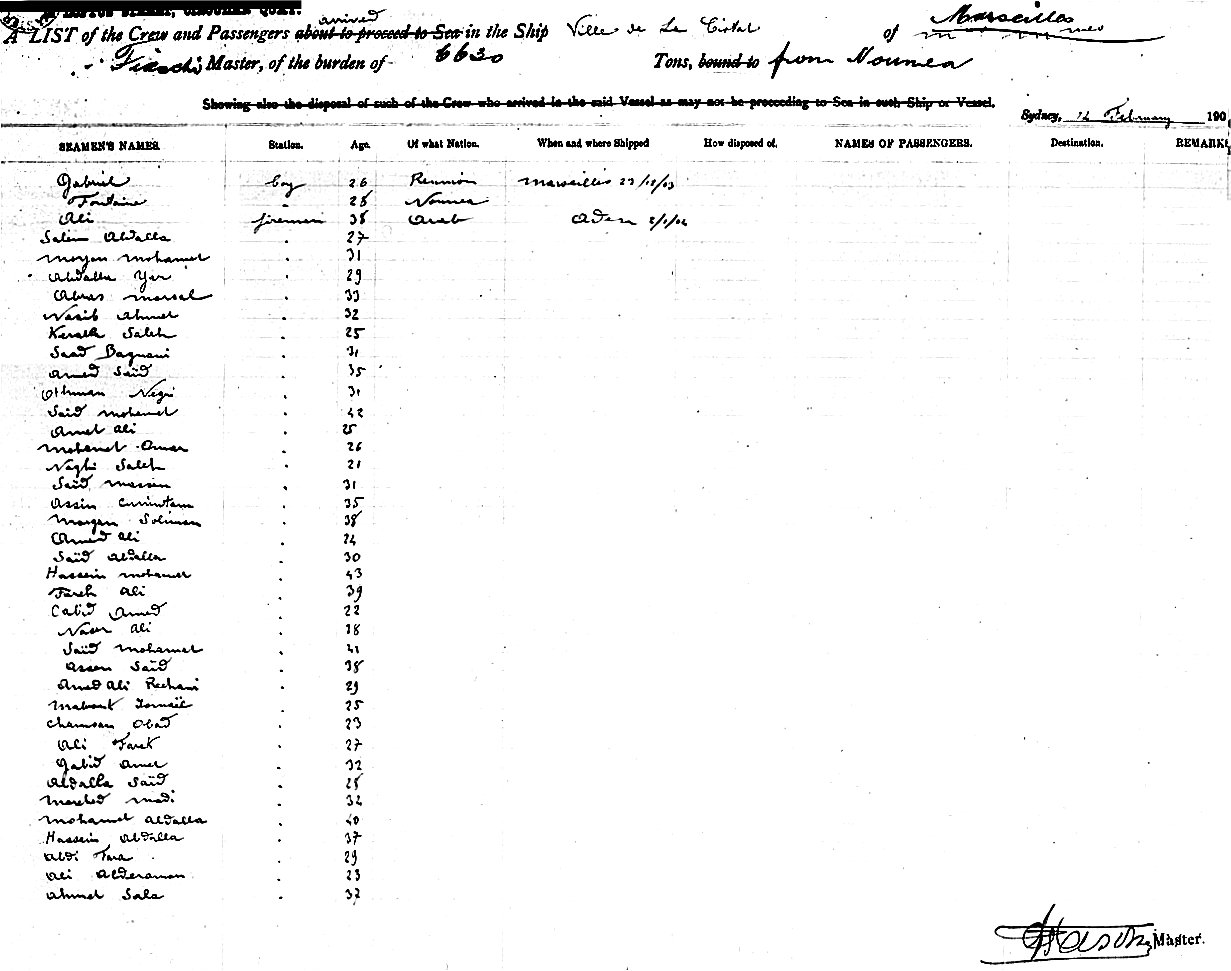 A LIST of the Crew and Passengers about to proceed to Sea arrived in the Ship Ville de La Ciotat of Marseilles
Master, of the burden of 6630 Tons, bound to from Noumea
Showing also the disposal of such of the Crew who arrived in the said Vessel as may not be proceeding to Sea in such Ship or Vessel.
Sydney, February 190
SEAMEN'S NAMES. Station. Age. Of what Nation. When and where Shipped How disposed of. NAMES OF PASSENGERS. Destination. REMARKS
Gabriel boy 26 Reunion Marseilles 23/12/03
Fontaine " 28 Noumea
Ali fireman 38 Arab Aden 2/1/04
Salem Abdalla " 27
Morgan Mohamet " 31
Abdalla " 29
Abas Marsal " 33
Nasib Ahmet " 32
Saleh " 25
Saad " 31
Amed Saïd " 35
Othman Negri " 31
Saïd Mohamet " 42
Amet Ali " 25
Mohamet Omar " 26
Naghi Saleh " 21
Saïd " 31
Assin " 35
Morgan Soliman " 38
Amed Ali " 24
Saïd Abdalla " 30
Hassein Mohamet " 43
Fareh Ali " 39
Cabid Amed " 22
Naser Ali " 38
Saïd Mohamet " 41
Assen Saïd " 38
Amed Ali " 29
Ismaïl " 25
Chamsan Obad " 23
Ali Faret " 27
Gabid Amer " 32
Abdalla Saïd " 28
Marched Madi " 32
Mohamet Abdalla " 40
Hassein Abdalla " 37
Abdi Fara " 29
Ali Abderaman " 23
Ahmet Sala " 37
Master.